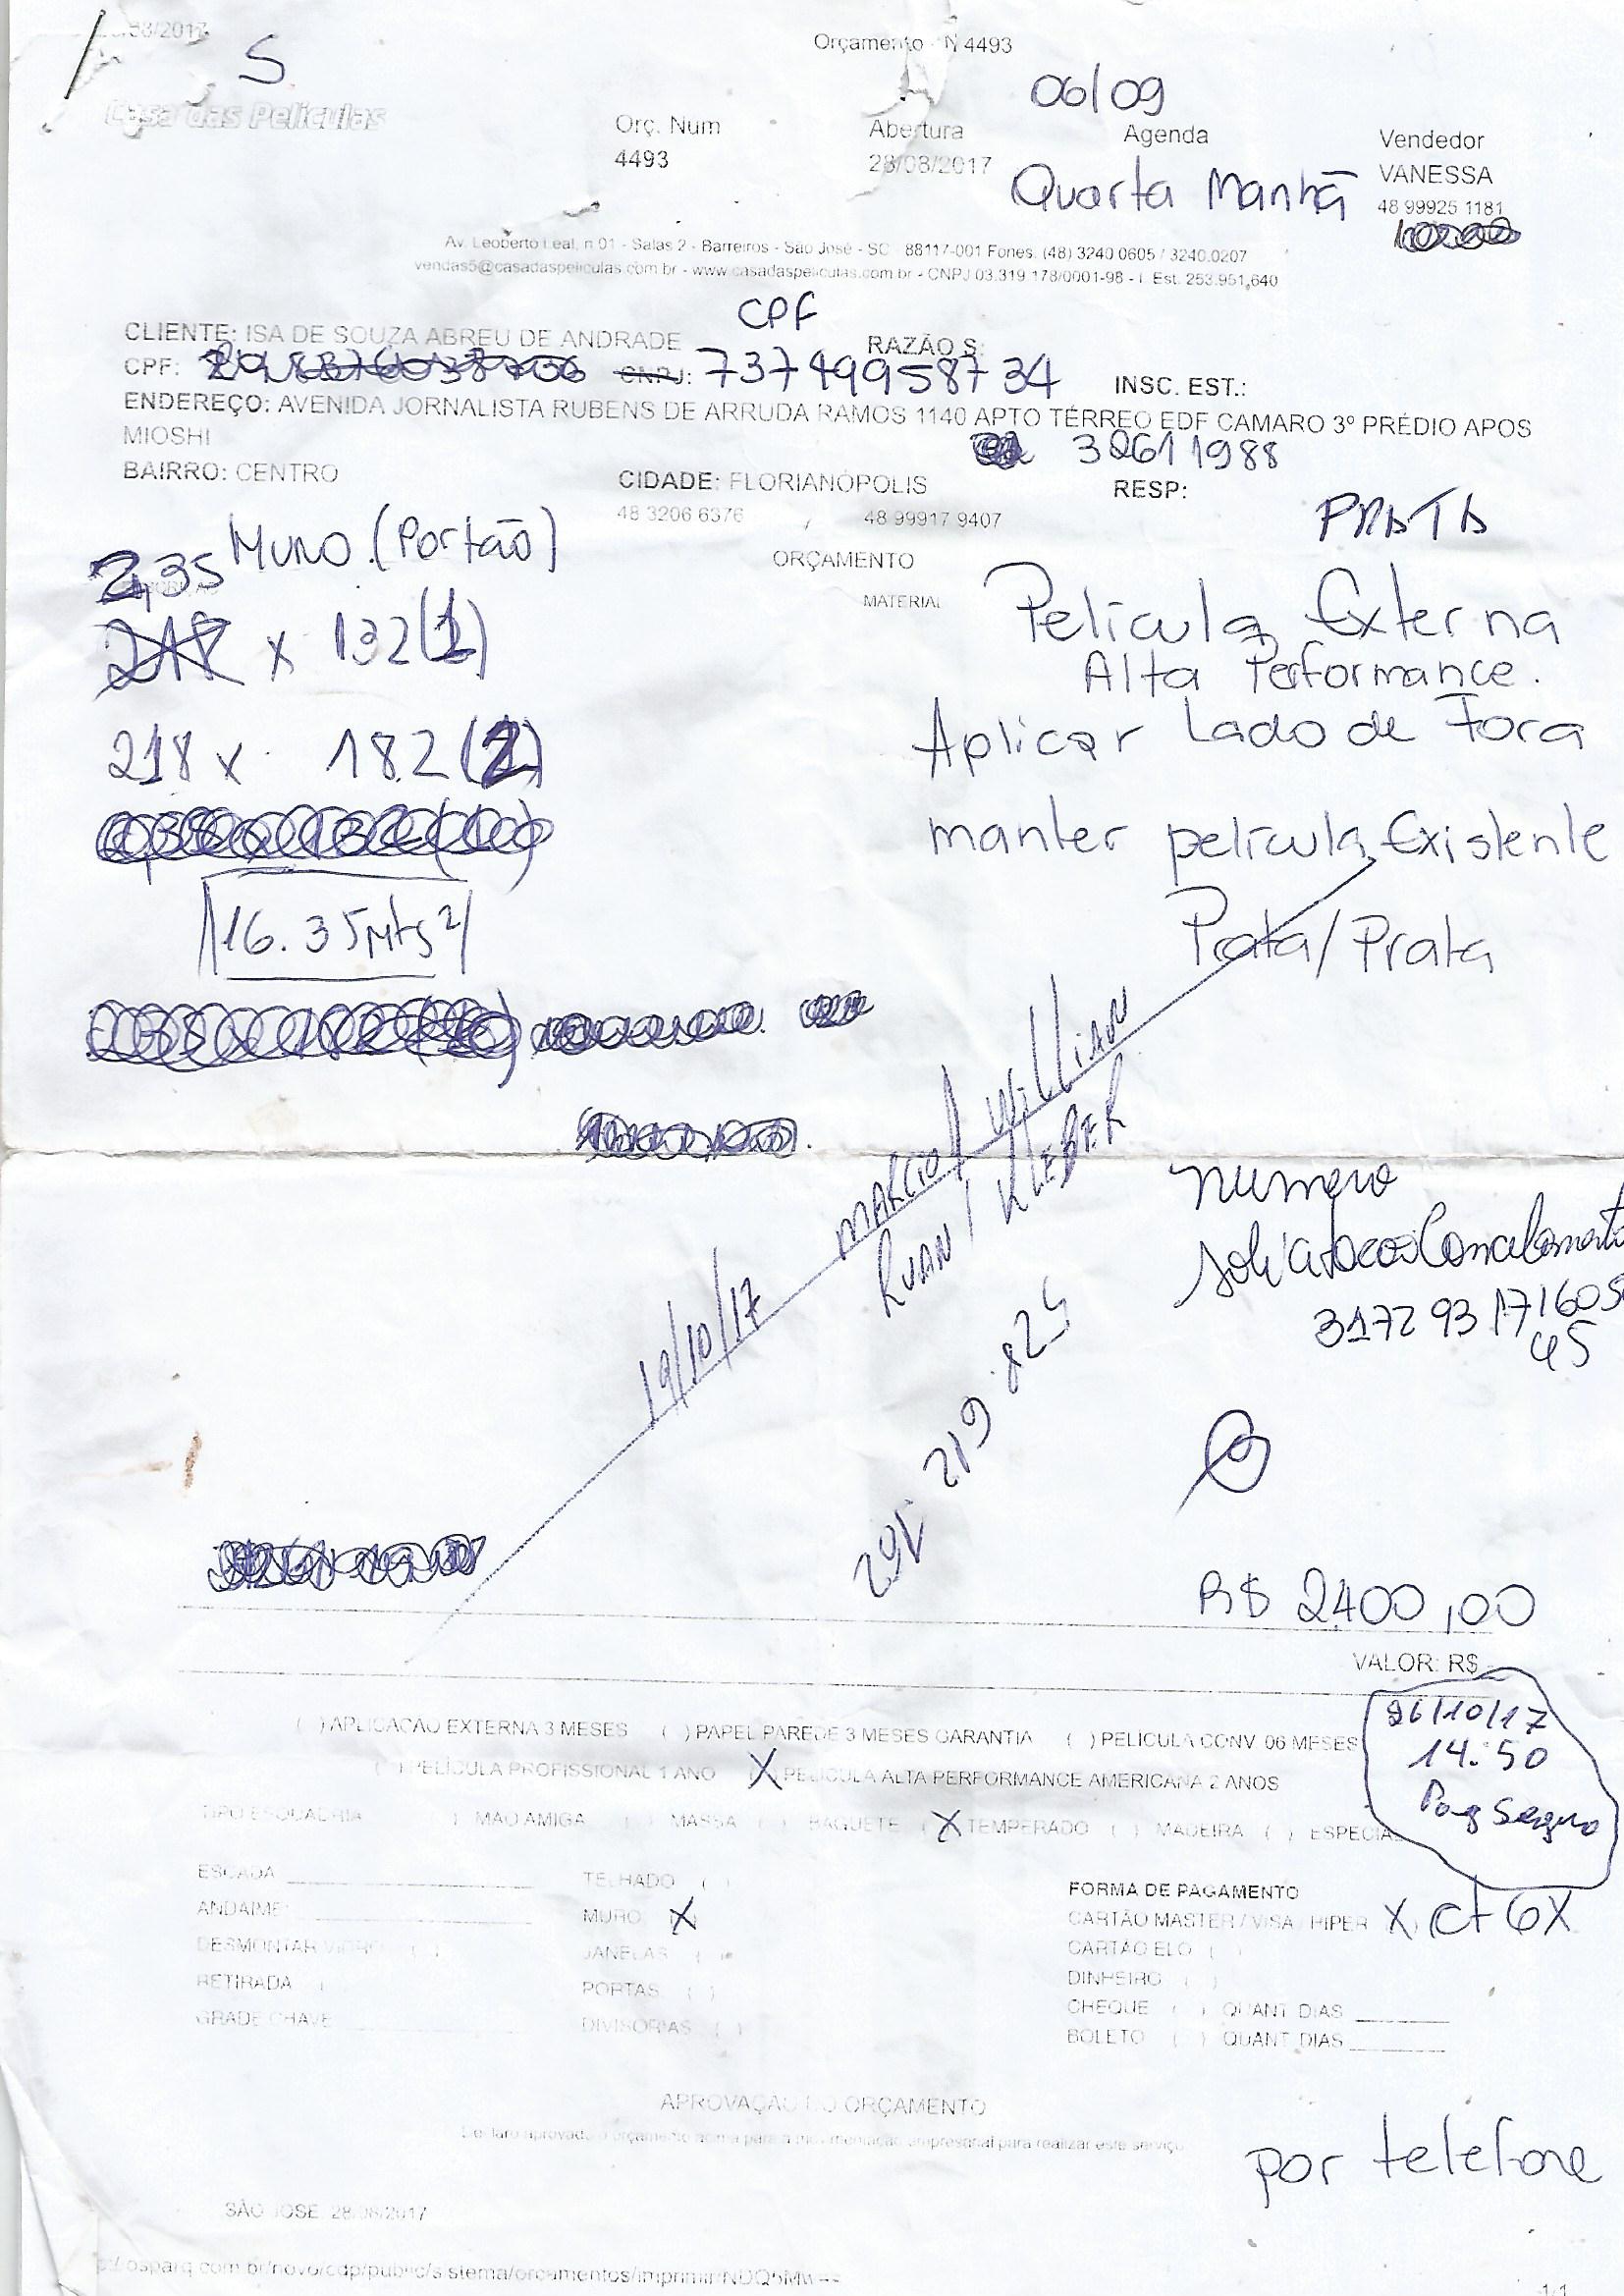 Orçamento - N 4493
S
06/09
Casa das Películas
Orç. Num
4493
Abertura
28/08/2017
Agenda
Quarta Manhã
Vendedor
VANESSA
48 99925 1181
Av. Leoberto Leal, n 01 - Salas 2 - Barreiros - São José - SC 88117-001 Fones. (48) 3240 0605 / 3240.0207
vendas5@casadaspeliculas.com.br - www.casadaspeliculas.com.br - CNPJ 03.319.178/0001-98 - I. Est. 253.951,640
CPF
CLIENTE: ISA DE SOUZA ABREU DE ANDRADE RAZÃO S:
CPF: CNPJ: 737499958734 INSC. EST.:
ENDEREÇO: AVENIDA JORNALISTA RUBENS DE ARRUDA RAMOS 1140 APTO TÉRREO EDF CAMARO 3º PRÉDIO APOS
MIOSHI
32611988
BAIRRO: CENTRO CIDADE: FLORIANÓPOLIS RESP:
48 3206 6376 / 48 99917 9407
PRATA
Muro (Portão)
ORÇAMENTO
2,35
MATERIAL
x 132(1)
Película Externa
Alta Performance.
218 x 182(2)
Aplicar Lado de Fora
manter película Existente
16.35 Mts²
Prata/Prata
MARCIO/WILLIAN
RUAN/KLEBER
numero
19/10/17
317293171605
45
219.824
R$ 2400,00
VALOR: R$
( ) APLICAÇÃO EXTERNA 3 MESES ( ) PAPEL PAREDE 3 MESES GARANTIA ( ) PELICULA CONV 06 MESES
26/10/17
14:50
Pag Seguro
( ) PELÍCULA PROFISSIONAL 1 ANO (X) PELÍCULA ALTA PERFORMANCE AMERICANA 2 ANOS
TIPO ESQUADRIA ( ) MAO AMIGA ( ) MASSA ( ) BAGUETE (X TEMPERADO ( ) MADEIRA ( ) ESPECIAL
ESCADA
ANDAIME
DESMONTAR VIDRO ( )
RETIRADA
GRADE CHAVE
TELHADO ( )
MURO (X)
JANELAS ( )
PORTAS ( )
DIVISORIAS ( )
FORMA DE PAGAMENTO
CARTÃO MASTER / VISA / HIPER X ct 6X
CARTÃO ELO ( )
DINHEIRO ( )
CHEQUE ( ) QUANT DIAS
BOLETO ( ) QUANT DIAS
APROVAÇÃO DO ORÇAMENTO
por telefone
SÃO JOSE, 28/08/2017
1/1